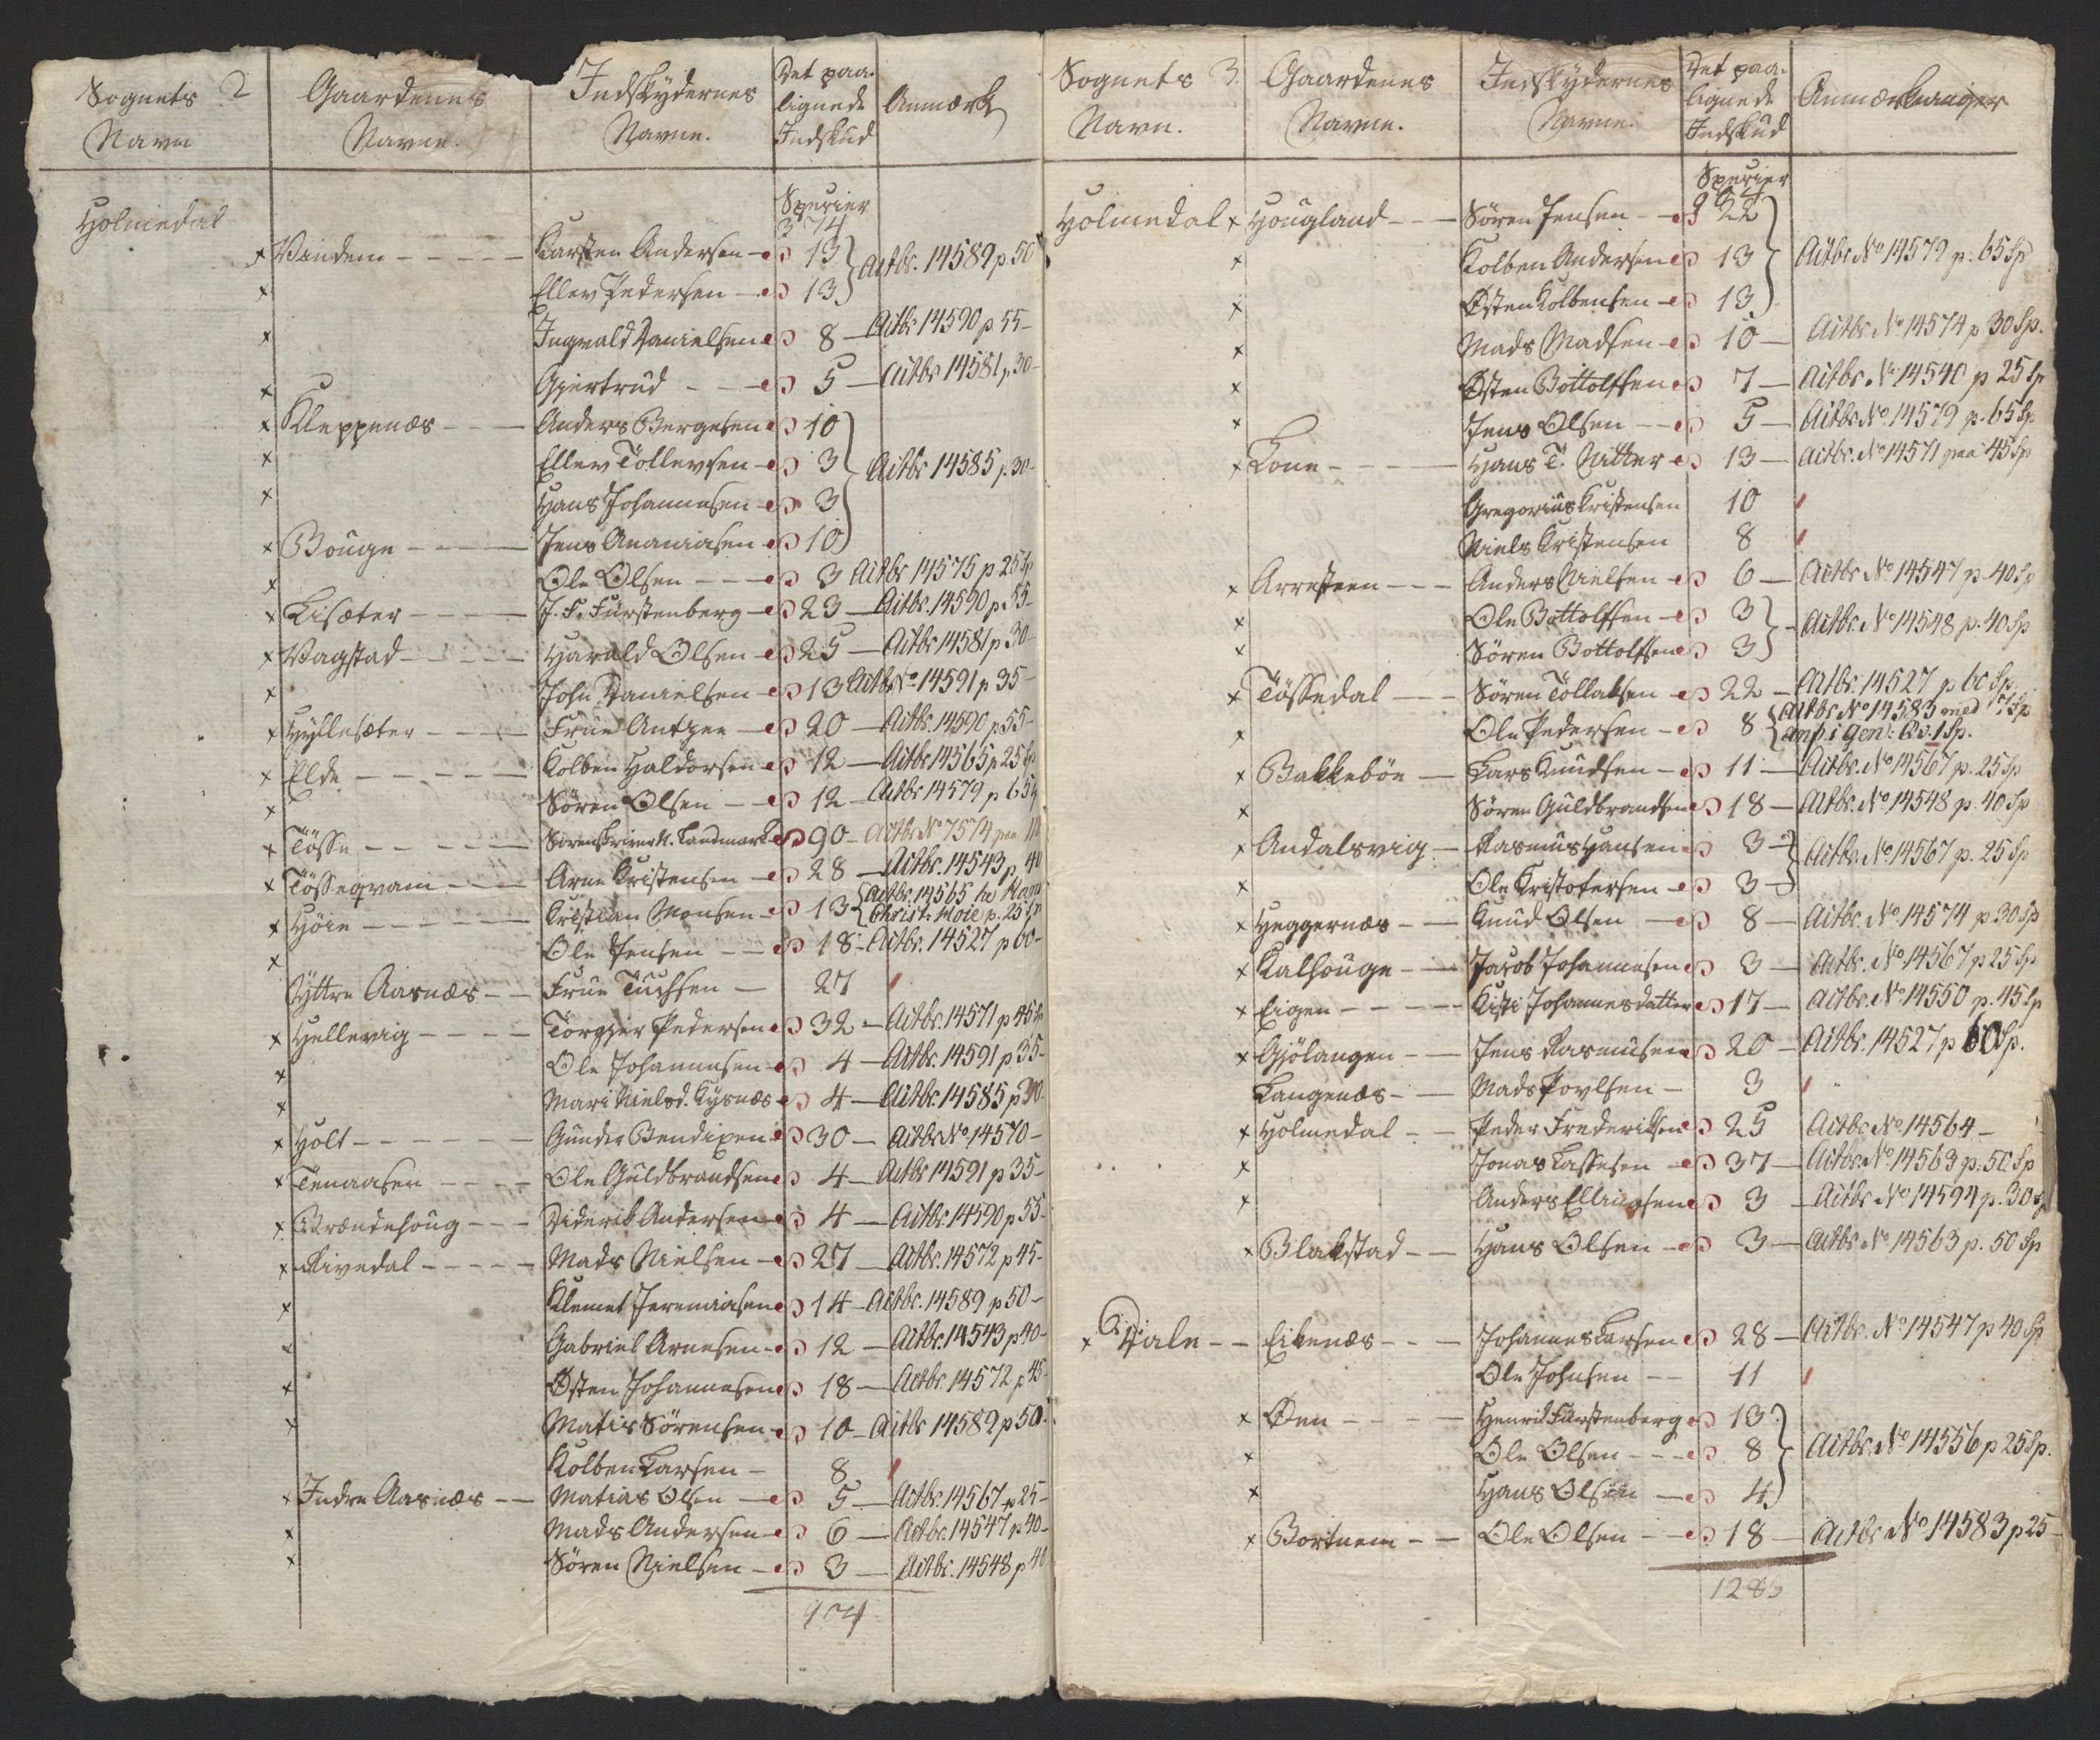 Sognets 2 Gaardenes Indskydernes Det paa- Anmærk
Navn Navne. Navne. lignede
Indskud
Holmedal Specier
374
× Vindem - - - - - Karsten Andersen - 13 } Actbr. 14589 p 50
× Ellev Pedersen - 13 }
× Ingvald Danielsen 8 - Actbr 14590 p 55-
× Gjertrud - - - 5 - Actbr 14581 p 30-
× Kleppenæs - - - Anders Bergesen 10 }
× Ellev Tollevsen - 3 } Actbr. 14585 p. 30-
× Hans Johannesen - 3 }
× Bouge - - - - Jens Ananiasen 10 }
× Ole Olsen - - - 3 Actbr 14575 p 25 Sp
× Lisæter - - - - J. F. Fürstenberg - 23 - Actbr. 14590 p. 55-
× Vagstad - - - - Harald Olsen - 25 - Actbr 14581 p 30-
× John Danielsen - 13 Actbr. No 14591 p 35-
× Hyllesæter - - - Frue Antzee - 20 - Actbr. 14590 p 55-
× Elde - - - - - Kolben Haldorsen 12 - Actbr 14565 p 25 Sp
× Søren Olsen - - 12 - Actbr 14579 p 65 Sp
× Tösse - - - - Sorenskriver N. Landmark 90 - Actbr No 7574 paa 110
× Tössegvam - - - Arne Kristensen - 28 - Actbr. 14543 p 40
× Höie - - - - - Kristian Monsen - 13 { Actbr. 14565 
Christ: Hoie p. 25 Sp
× Ole Jensen - - 18 - Actbr. 14527 p 60-
Yttre Aasnæs - - Frue Tuchsen - 27
× Hellevig - - - - Torgier Pedersen 32 - Actbr. 14571 p 45 Sp
× Ole Johannesen - 4 - Actbr. 14591 p 35-
× Mari Nielsd. Kysnæs 4 - Actbr. 14585 p 30-
× Holt - - - - - - Gunder Bendixen 30 - Actbr No 14570 -
× Tenaasen - - - - Ole Guldbrandsen 4 - Actbr 14591 p 35-
× Brændehoug - - - Diderik Andersen 4 - Actbr. 14590 p 55-
× Rivedal - - - - - Mads Nielsen - 27 - Actbr. 14572 p 45-
× Klemet Jeremiasen 14 - Actbr. 14589 p 50-
× Gabriel Arnesen - 12 - Actbr. 14543 p 40-
× Østen Johannesen 18 - Actbr. 14572 p 45-
× Matis Sørensen - 10 - Actbr 14589 p 50-
Kolben Larsen - 8
× Indre Aasnæs - - Matias Olsen - 5 - Actbr. 14567 p 25-
× Mads Andersen - 6 - Actbr. 14547 p 40-
× Søren Nielsen - 3 - Actbr. 14548 p 40
974
Sognets 3. Gaardenes Indskydernes Det paa- Anmærkninger
Navn. Navne. Navne. lignede
Indskud
Specier
974
Holmedal × Hougland - - - Søren Jensen - 22 }
× Kolben Andersen 13 } Actbr No 14579 p. 65 Sp
× Østen Kolbensen - 13 }
× Mads Madsen - 10 - Actbr. No 14574 p 30 Sp.
× Østen Bottolfsen 7 - Actbr. No 14540 p 25 Sp
× Jens Olsen - - 5 - Actbr. No 14579 p. 65 Sp
× Lone - - - - Hans T. Nitter 13 - Actbr. No 14571 paa 45 Sp
Gregorius Kristensen 10
Niels Kristensen 8
× Arresteen - - - Anders Nielsen - 6 - Actbr No 14547 p. 40 Sp
× Ole Bottolfsen - 3 } Actbr. No 14548 p. 40 Sp
× Søren Bottolfsen 3 }
× Tössedal - - Søren Tollaksen - 22 - Actbr. 14527 p 60 Sp.
× Ole Pedersen - 8 { Actbr No 14583 med
anf. i gen: 
× Bakkeböe - Lars Knudsen - 11 - Actbr. No 14567 p. 25 Sp
× Søren Guldbrandsen 18 - Actbr. No 14548 p. 40 Sp
× Aadalsvig - Rasmus Hansen 3 } Actbr. No 14567 p. 25 Sp
× Ole Kristofersen - 3 }
× Heggernæs - - Knud Olsen - 8 - Actbr. No 14574 p. 30 Sp
× Kalhouge - - Jacob Johannesen 3 - Actbr. No 14567 p 25 Sp
× Eigen - - - - Kisti Johannesdatter 17 - Actbr. No 14550 p. 45 Sp
× Gjölangen - - Jens Rasmusen 20 - Actbr. 14527 p 60 Sp.
Langenæs - - Mads Povlsen - 3
× Holmedal - - Peder Frederiksen 25 Actbr No 14564 -
× Jonas Lassesen 37 - Actbr. No 14563 p. 50 Sp
× Anders Ellingsen 3 - Actbr No 14594 p. 30 Sp
× Blakstad - - Hans Olsen - 3 - Actbr No 14563 p. 50 Sp
× Dale - - Eikenæs - - - Johannes Larsen 28 - Actbr. No 14547 p 40 Sp
Ole Johnsen - - 11
× Øen - - - - Henrik Fürstenberg 13 }
× Ole Olsen - - - 8 } Actbr. No 14556 p 25 Sp.
× Hans Olsen - 4 }
× Bortnem - - Ole Olsen - - 18 - Actbr No 14583 p 25-
1283